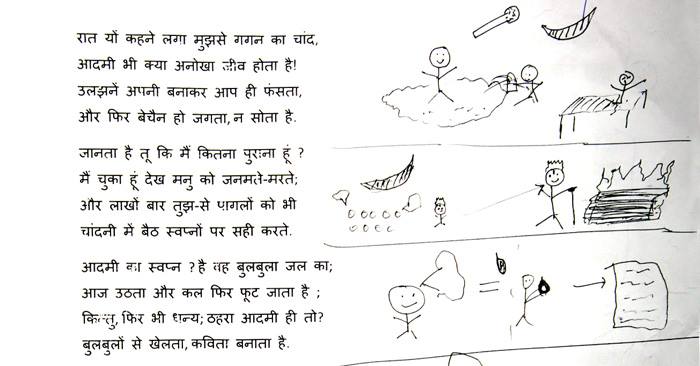 रात यों कहने लगा मुझसे गगन का चांद,
आदमी भी क्या अनोखा जीव होता है!
उलझनें अपनी बनाकर आप ही फंसता,
और फिर बेचैन हो जगता, न सोता है.
जानता है तू कि मैं कितना पुराना हूं ?
मैं चुका हूं देख मनु को जनमते-मरते;
और लाखों बार तुझ-से पागलों को भी
चांदनी में बैठ स्वप्नों पर सही करते.
आदमी का स्वप्न ? है वह बुलबुला जल का;
आज उठता और कल फिर फूट जाता है ;
किन्तु, फिर भी धन्य; ठहरा आदमी ही तो?
बुलबुलों से खेलता, कविता बनाता है.